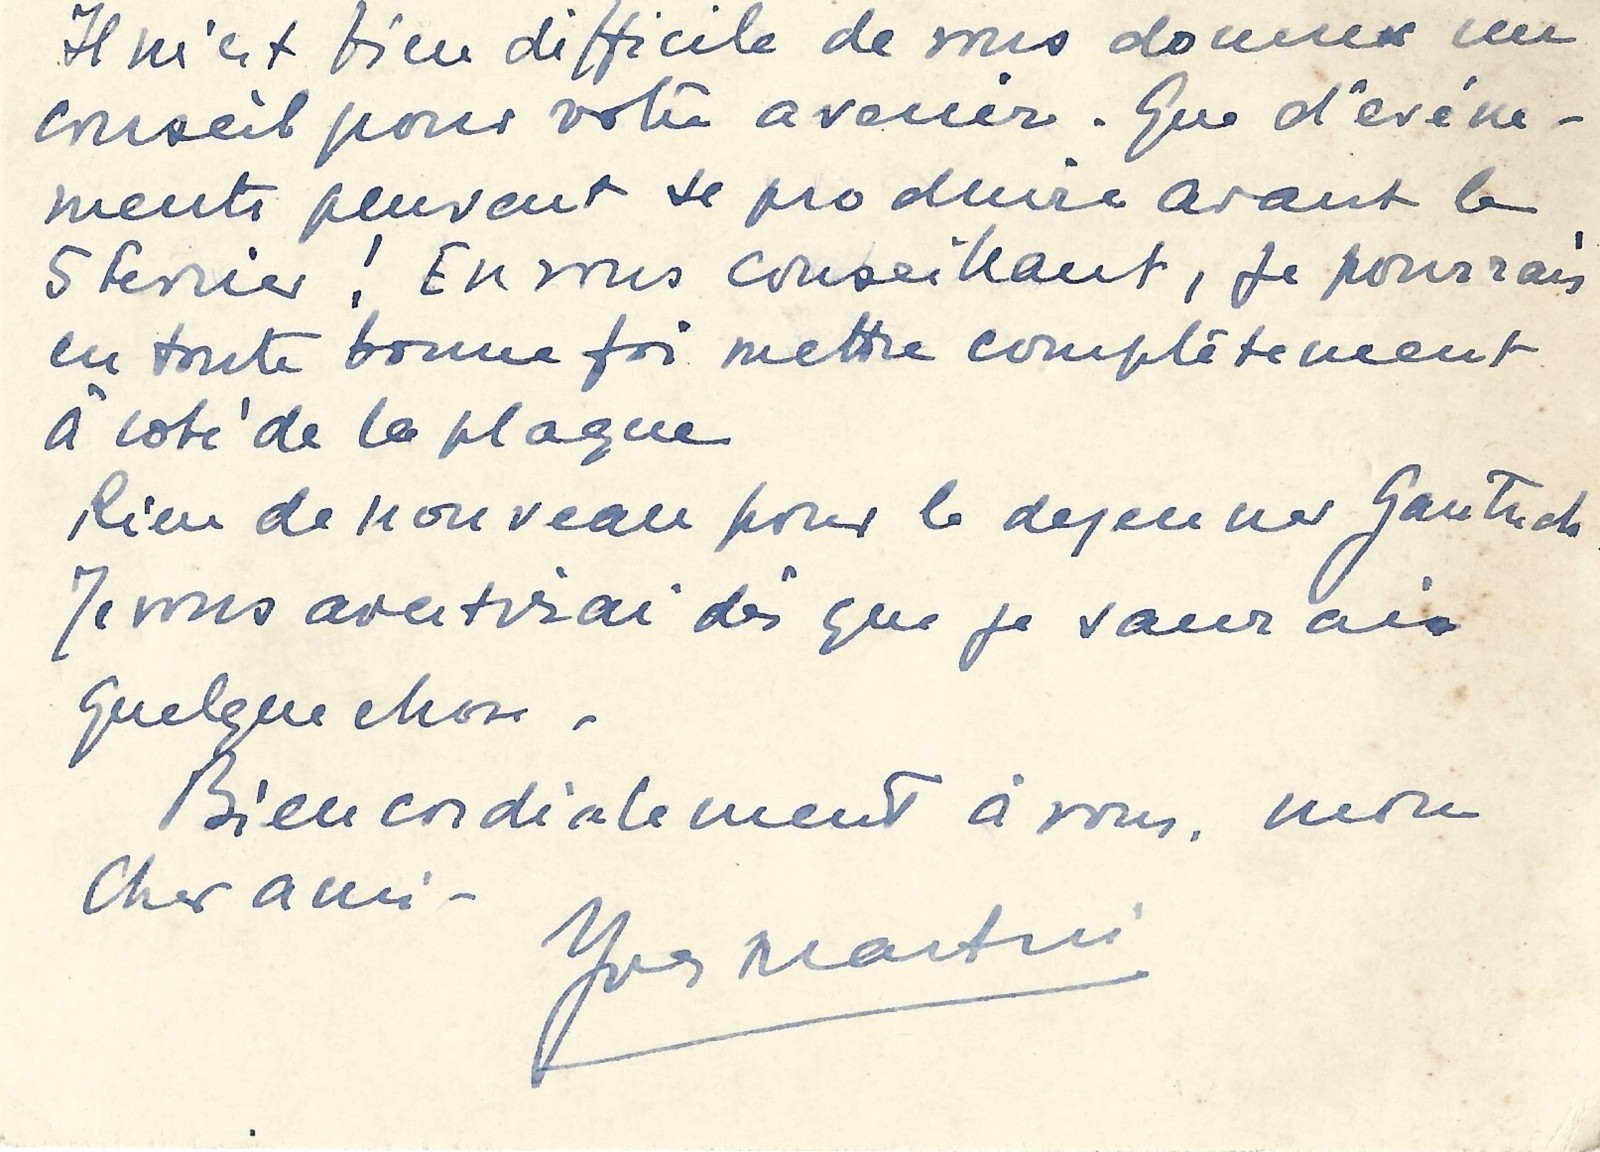 Il m'est bien difficile de vous donner un
conseil pour votre avenir. Que d'événe-
ments peuvent se produire avant le
5 février ! En vous conseillant, je pourrais
en toute bonne foi mettre complètement
à coté de la plaque
Rien de nouveau pour le dejeuner
Je vous avertirai dès que je saurais
quelque chose -
Bien cordialement à vous, mon
cher ami -
Yves Martin